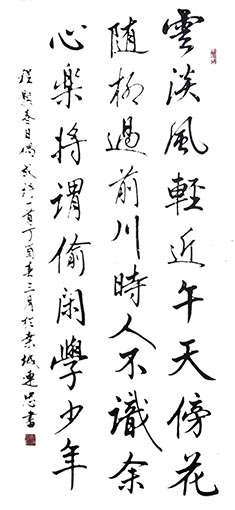 雲淡風輕近午天傍花
隨柳過前川時人不識余
心樂將謂偷閑學少年
程顥春日偶成詩一首丁酉春三月於京城連忠書